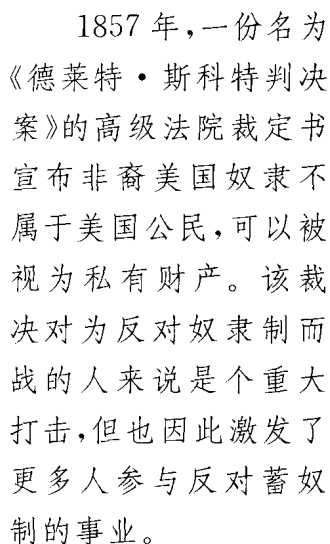 1857年,一份名为
《德莱特·斯科特判决
案》的高级法院裁定书
宣布非裔美国奴隶不
属于美国公民,可以被
视为私有财产。该裁
决对为反对奴隶制而
战的人来说是个重大
打击,但也因此激发了
更多人参与反对蓄奴
制的事业。